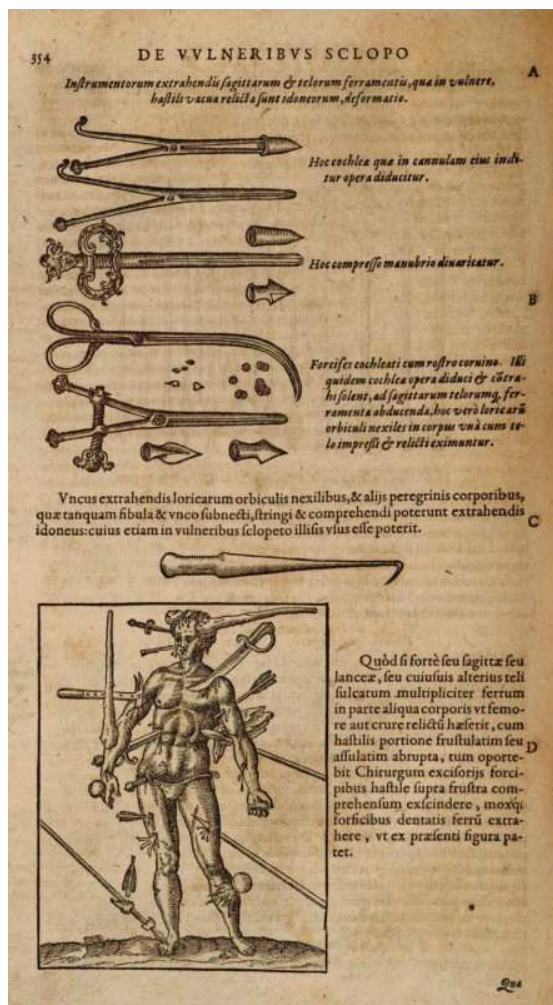 354
DE VVLNERIBVS SCLOPO
A
Instrumentorum extrahendis sagittarum & telorum ferramentis, quæ in vulnere,
hastili vacua relicta sunt idoneorum, deformatio.
Hoc cochleæ quæ in cannulam eius indi-
tur opera diducitur.
Hoc compresso manubrio diuaricatur.
B
Forcipes cochleati cum rostro coruino. Illi
quidem cochleæ opera diduci & cõtra-
hi solent, ad sagittarum telorumq, fer-
ramenta abducenda, hoc verò loricarũ
orbiculi nexiles in corpus vnà cum te-
lo impressi & relicti eximuntur.
Vncus extrahendis loricarum orbiculis nexilibus, & alijs peregrinis corporibus,
quæ tanquam fibula & vnco subnecti, stringi & comprehendi poterunt extrahendis
idoneus: cuius etiam in vulneribus sclopeto illisis vsus esse poterit.
C
Quòd si fortè seu sagittæ seu
lanceæ, seu cuiusuis alterius teli
sulcatum multipliciter ferrum
in parte aliqua corporis vt femo-
re aut crure relictũ hæserit, cum
hastilis portione frustulatim seu
assulatim abrupta, tum oporte-
bit Chirurgum excisorijs forci-
pibus hastile supra frustra com-
prehensum exscindere, moxq;
forficibus dentatis ferrũ extra-
here, vt ex præsenti figura pa-
tet.
D
Quæ